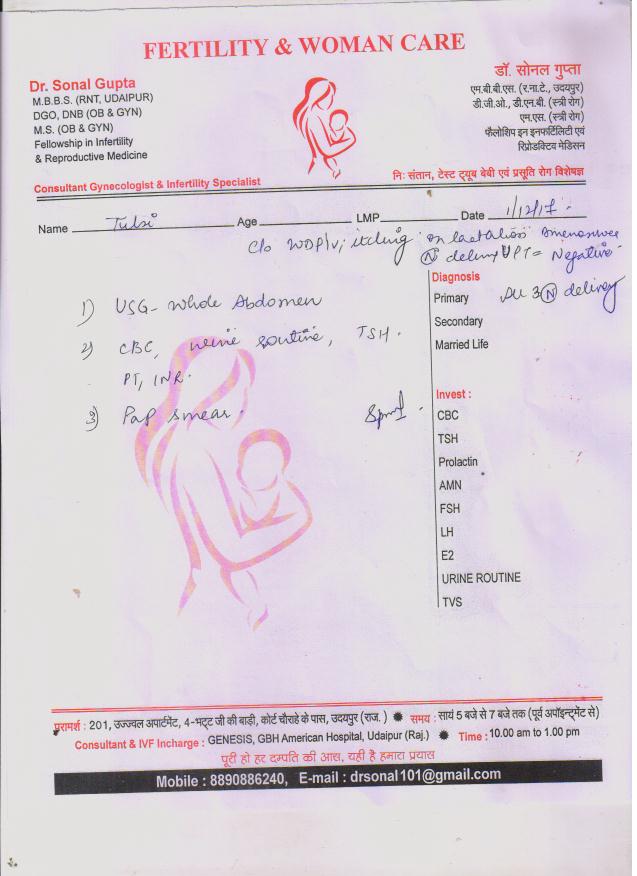 FERTILITY & WOMAN CARE
Dr. Sonal Gupta
M.B.B.S. (RNT, UDAIPUR)
DGO, DNB (OB & GYN)
M.S. (OB & GYN)
Fellowship in Infertility
& Reproductive Medicine
Consultant Gynecologist & Infertility Specialist
डॉ. सोनल गुप्ता
एम.बी.बी.एस. (र.ना.टे., उदयपुर)
डी.जी.ओ., डी.एन.बी. (स्त्री रोग)
एम.एस. (स्त्री रोग)
फैलोशिप इन इनफर्टिलिटी एवं
रिप्रोडक्टिव मेडिसन
निः संतान, टेस्ट ट्यूब बेबी एवं प्रसूति रोग विशेषज्ञ
Name Tulsi Age LMP Date 1/12/17
c/o WDP/V, itching on lactation
N delivery UPT = Negative
Diagnosis
Primary All 3 N delivery
Secondary
Married Life
1) USG - Whole Abdomen
2) CBC, urine routine, TSH.
PT, INR.
3) Pap smear.
Invest :
CBC
TSH
Prolactin
AMN
FSH
LH
E2
URINE ROUTINE
TVS
परामर्श : 201, उज्ज्वल अपार्टमेंट, 4-भट्ट जी की बाड़ी, कोर्ट चौराहे के पास, उदयपुर (राज.) ✹ समय : सायं 5 बजे से 7 बजे तक (पूर्व अपॉइन्ट्मेंट से)
Consultant & IVF Incharge : GENESIS, GBH American Hospital, Udaipur (Raj.) ✹ Time : 10.00 am to 1.00 pm
पूरी हो हर दम्पति की आस, यही है हमारा प्रयास
Mobile : 8890886240, E-mail : drsonal101@gmail.com